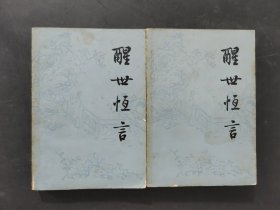 醒世恒言
醒世恒言